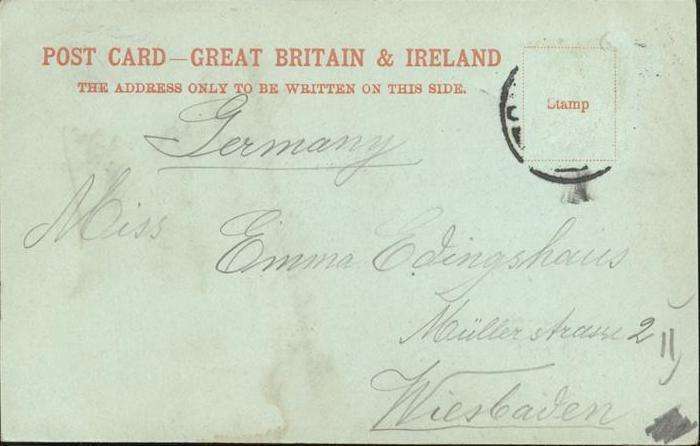 POST CARD—GREAT BRITAIN & IRELAND
THE ADDRESS ONLY TO BE WRITTEN ON THIS SIDE.
Stamp
Germany
Miss Emma Edingshaus
Müllerstrasse 2 II
Wiesbaden